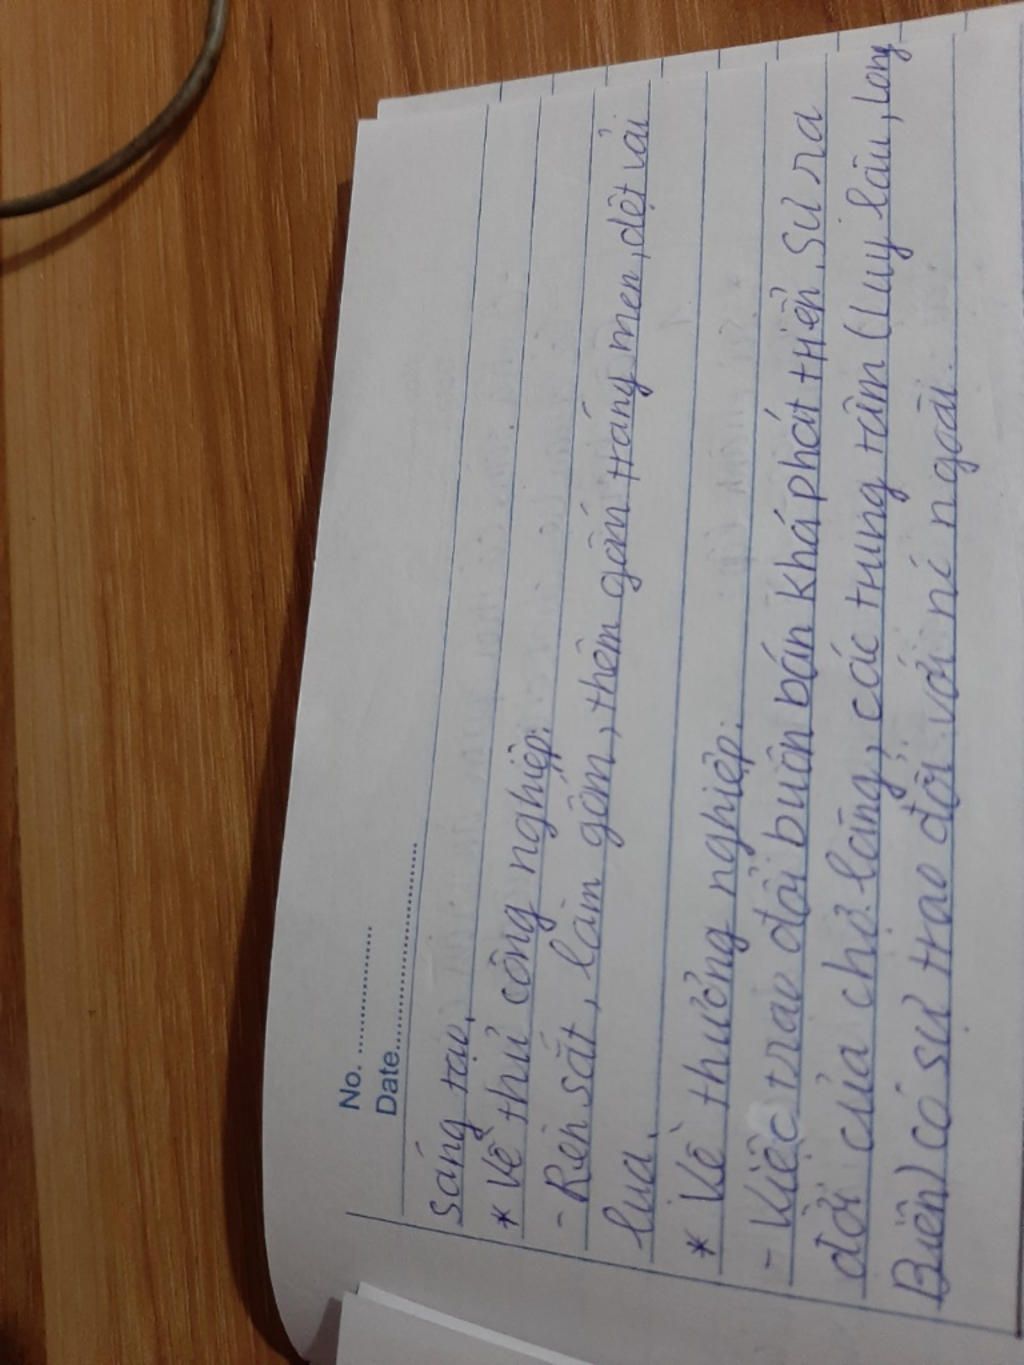 No. ....................
Date..............................
Sáng tạo.
* Về thủ công nghiệp:
- Rèn sắt, làm gốm, thêm gốm tráng men, dệt vải
lụa.
* Về thương nghiệp.
- Việc trao đổi buôn bán khá phát triển. Sự ra
đời của chợ làng, các trung tâm (Luy lâu, Long
Biên) có sự trao đổi với nc ngoài.